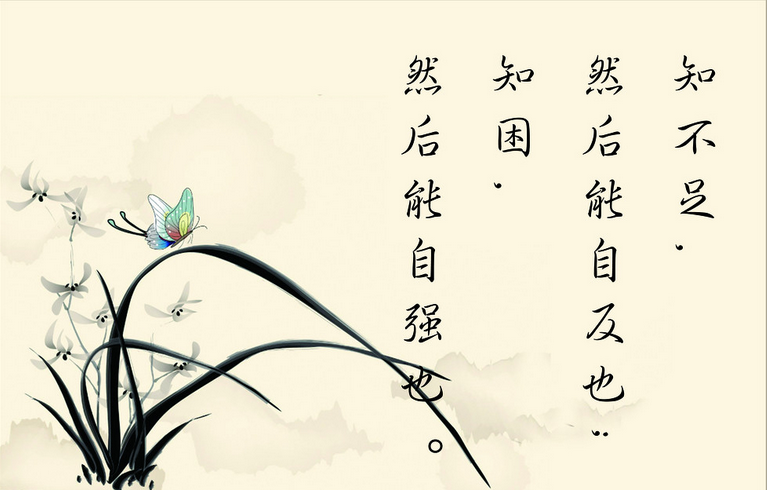 知不足，
然后能自反也；
知困，
然后能自强也。